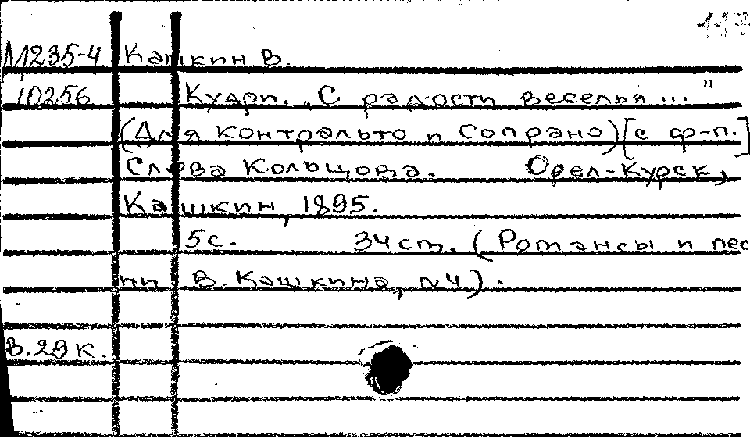 М235-4 Кашкин В.
10256 Кудри. „С радости веселья ..."
(Для контральто и сопрано) [с ф-п.]
Слова Кольцова. Орел-Курск,
Кашкин, 1895.
5с. 34 см. (Романсы и пес
ни В. Кашкина, №4).
В.29к.